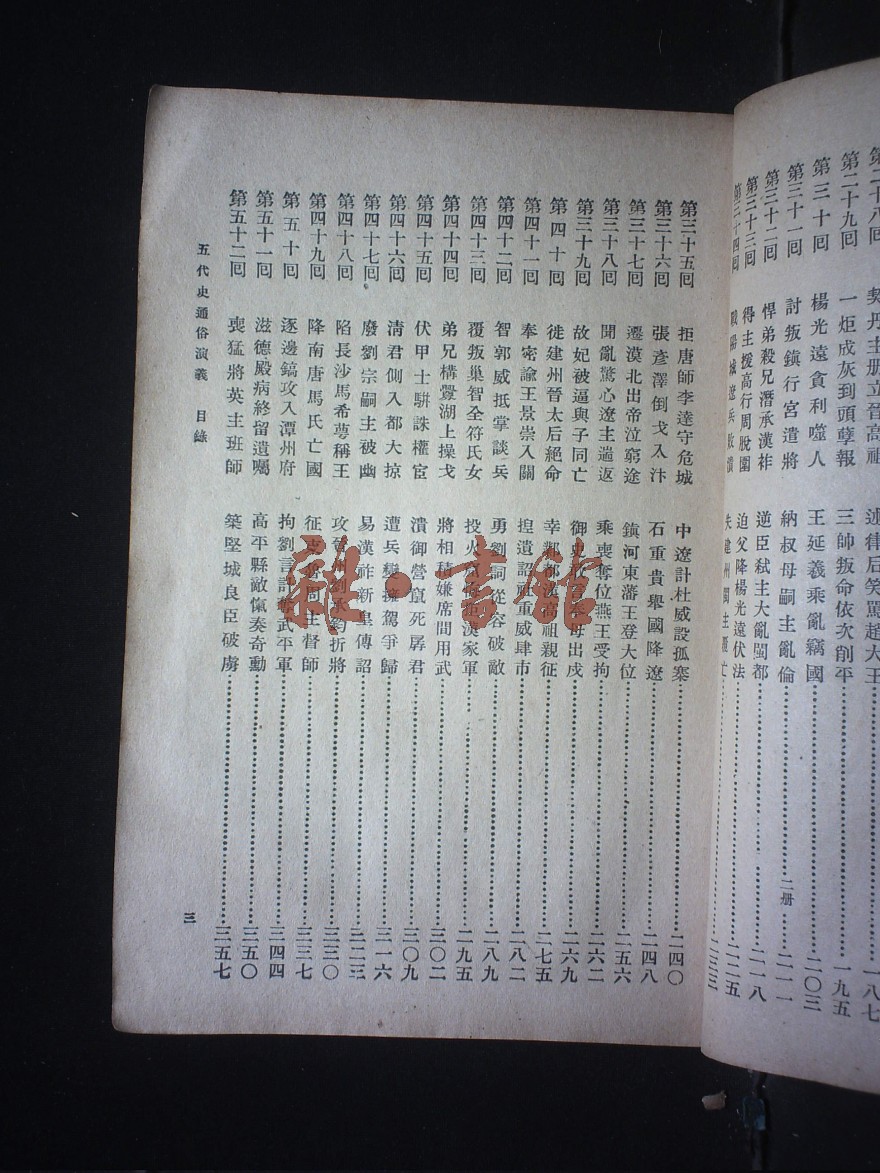 第二十八回 契丹主册立晉高祖 述律后笑罵趙大王 一八七
第二十九回 一炬成灰到頭孽報 三帥叛命依次削平 一九五
第三十回 楊光遠貪利噬人 王延羲乘亂竊國 二〇三
第三十一回 討叛鎮行宮遣將 納叔母嗣主亂倫 二册 二一一
第三十二回 悍弟殺兄潛承漢祚 逆臣弒主大亂閩都 二一八
第三十三回 得主援高行周脫圍 迫父降楊光遠伏法 二二五
第三十四回 戰陽城遼兵敗潰 失建州閩主覆亡 二三三
第三十五回 拒唐師李達守危城 中遼計杜威設孤寨 二四〇
第三十六回 張彥澤倒戈入汴 石重貴舉國降遼 二四八
第三十七回 遷漠北出帝泣窮途 鎮河東藩王登大位 二五六
第三十八回 聞亂驚心遼主遄返 乘喪奪位燕王受拘 二六二
第三十九回 故妃被逼與子同亡 御史 奉母出戍 二六九
第四十回 徙建州晉太后絕命 幸鄴都漢高祖親征 二七五
第四十一回 奉密諭王景崇入關 揑遺詔杜重威肆市 二八二
第四十二回 智郭威抵掌談兵 勇劉詞從容破敵 二八九
第四十三回 覆叛巢智全符氏女 投火窟悔拒漢家軍 二九五
第四十四回 弟兄構釁湖上操戈 將相積嫌席間用武 三〇二
第四十五回 伏甲士駢誅權宦 潰御營竄死孱君 三〇九
第四十六回 清君側入都大掠 遭兵變擁駕爭歸 三一六
第四十七回 廢劉宗嗣主被幽 易漢祚新皇傳詔 二二三
第四十八回 陷長沙馬希萼稱王 攻晉州劉承鈞折將 三三〇
第四十九回 降南唐馬氏亡國 征兗州周主督師 三三七
第五十回 逐邊鎬攻入潭州府 拘劉言計奪武平軍 三四四
第五十一回 滋德殿病終留遺囑 高平縣敵愾奏奇勳 三五〇
第五十二回 喪猛將英主班師 築堅城良臣破虜 三五七
五代史通俗演義 目錄 三
雜·書館